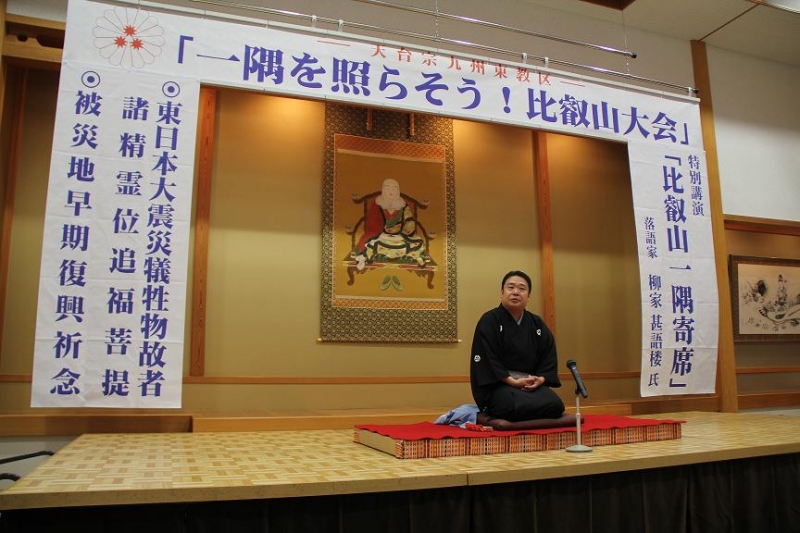 天台宗九州東教区
「一隅を照らそう！比叡山大会」
特別講演
「比叡山一隅寄席」
落語家 柳家 甚語楼 氏
◉東日本大震災犠牲物故者
諸精霊位追福菩提
◉被災地早期復興祈念